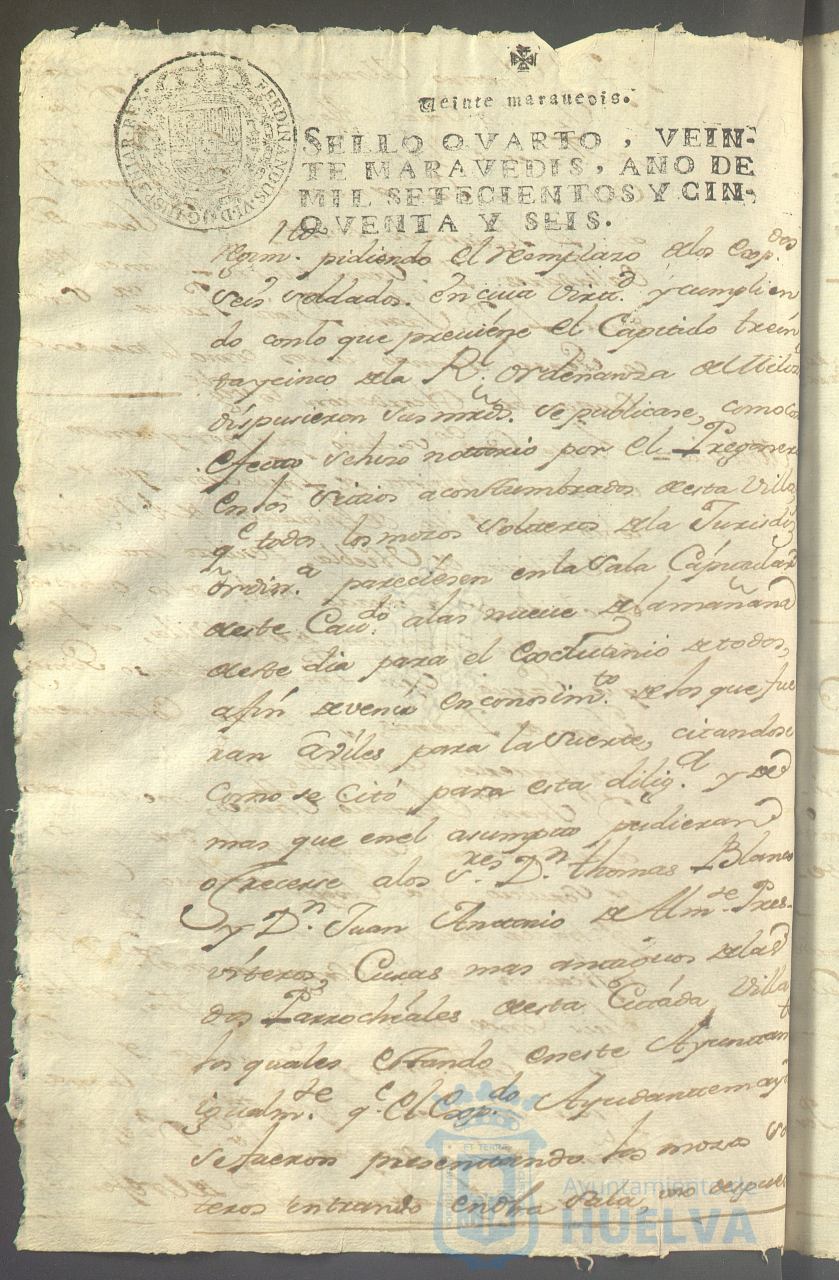 FERDINANDUS.VI.D.G.HISPANIAR.REX.
Veinte marauedis.
SELLO QVARTO, VEIN-
TE MARAVEDIS, AÑO DE
MIL SETECIENTOS Y CIN-
QVENTA Y SEIS.
pidiendo el reemplazo de los
seis soldados. En cuia virtd. y cumplien
do conlo que previene el Capitulo trein
taycinco de la Rl. ordenanza de Miliz
dispusieron sus mrds. se publicase, como con
efecto se hizo notorio por el Pregonero
en los sitios acostumbrados de esta Villa,
qe todos los mozos solteros de la Jurisdizn
ordin.a pareciesen en la Sala Capitular
de este Cavdo. a las nueve de la mañana
de este dia para el escrutinio de todos,
a fin de venir en conosimto. de los que fue
ran aviles para la suerte, citandose
como se citó para esta dilig.a y de
mas que en el asumpto pudieran
ofrecerse a los Sres. Dn. Thomas Blanco
y Dn. Juan Antonio de Pres-
viteros, Curas mas antiguos de las
dos Parrochiales de esta Villa
los quales estando en este Ayuntam
igualmte. qe el Ayudante mayr
se fueron presentando los mozos sol
teros entrando en dha Sala, uno despues
ET TERRAE
Ayuntamiento de
HUELVA